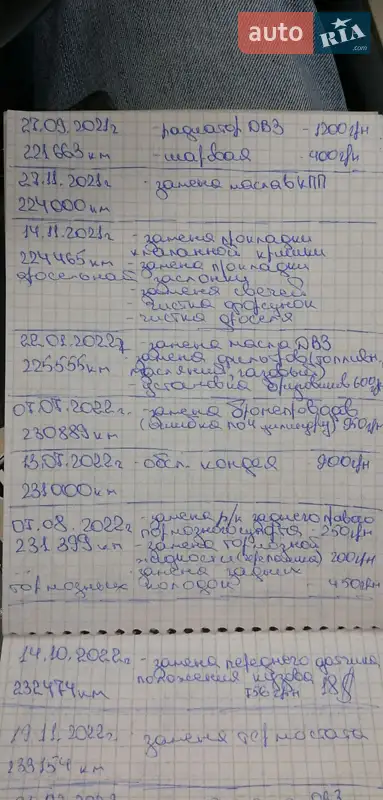 auto RIA
.com
27.09.2021г - радиатор ДВЗ - 1200грн
221663км - шаровая - 400грн
27.11.2021г - замена масла в КПП
224000км
14.11.2021г - замена прокладки
клапанной крышки
224465км - замена прокладки
дросельной заслонки
- замена свечей
- чистка форсунок
- чистка дроселя
2022г - замена масла ДВЗ
225555км замена фильтров (топливн,
масляний газовый)
- установка 600гр
2022г. - замена бронепроводов
230889км (ошибка по 4 цилиндру) 950грн
2022г - обсл. кондея 900грн
231000км
08.2022г - замена р/к заднего правого
тормозного - 250грн
231399км - замена тормозной
жидкости 200грн
замена задних
тормозных колодок 450грн
14.10.2022г - замена переднего датчика
положения кузова
232474км 756грн 18$
19.11.2022г. - замена термостата
233154км